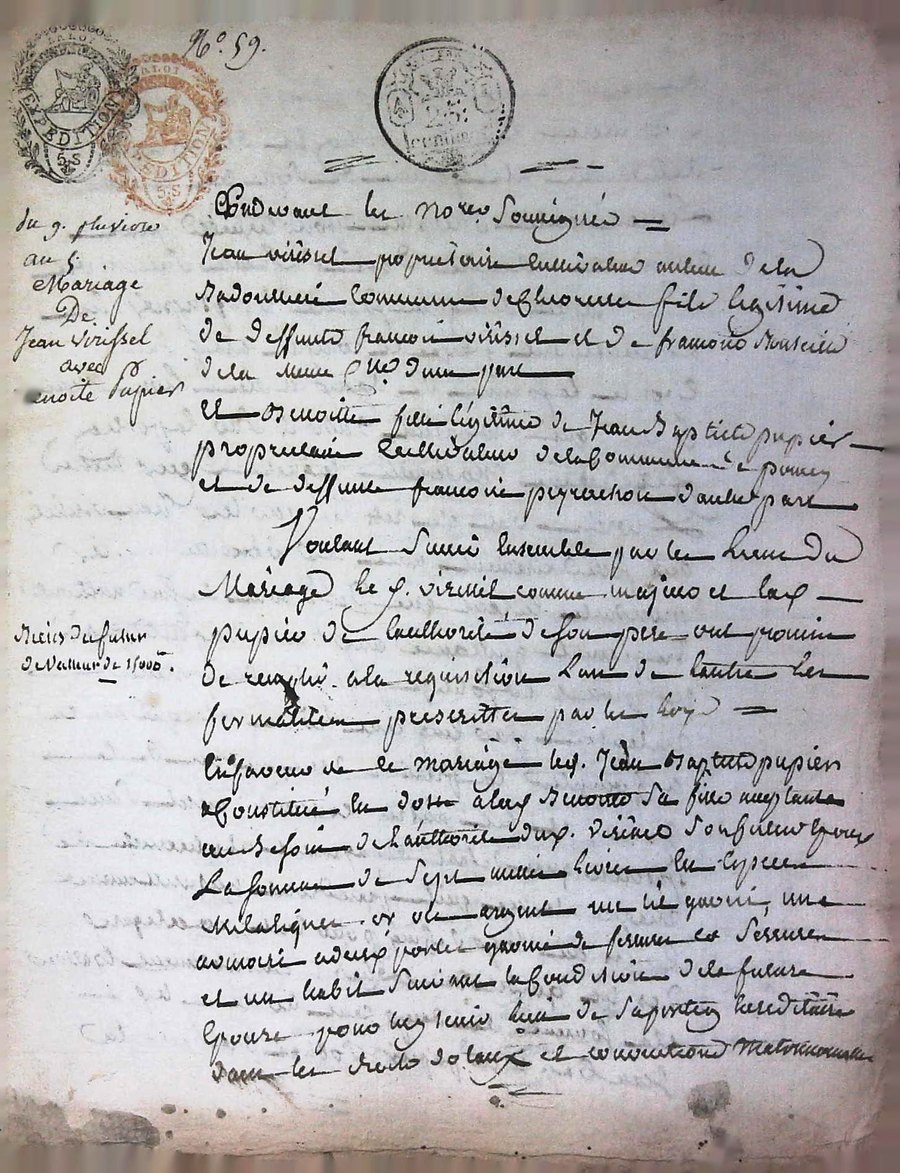 No. 59.
EXPEDITION
5 S
EXPEDITION
5 S
25
centimes
du 9. pluviose
au 5.
Mariage
De
Jean Virissel
avec
enoite Pupier
Biens du futur
de valeur de 15000
Pardevant les Nores Soussignés
Jean virissel propriétaire cultivateur au lieu de la
commune de fils légitime
de deffunt françois virissel et de
de la même d'une part
Et Benoitte fille légitime de Jean Baptiste pupier
propriétaire Cultivateur de la Commune de
et de deffunte françoise peyrachon d'autre part
Voulant s'unir Ensemble par les liens du
Mariage le C. virissel comme majeur et la C.
pupier de l'authorité de son pere ont promis
de remplir à la requisition L'un de l'autre Les
formalités prescrittes par les Loys
En faveur de ce mariage le C. Jean Baptiste pupier
a Constitué En dot a la C. Benoitte sa fille
au Besoin de L'authorité du C. son futur Epoux
La somme de Sept mille livres En Espèces
Metaliques or ou argent un lit garni, une
armoire a deux portes garnie de ferrure et serrure
et un habit Suivant la Condition de la future
Epouse pour luy tenir lieu de Sa portion héréditaire
dans les droits dotaux et conventions Matrimoniales